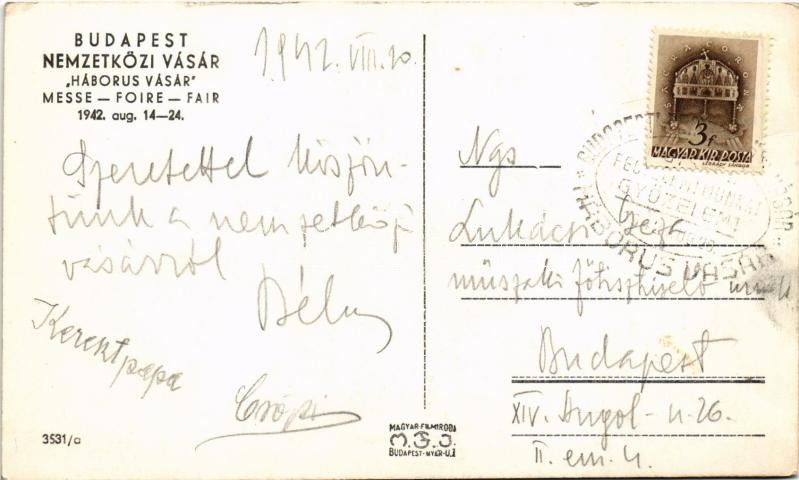 BUDAPEST
NEMZETKÖZI VÁSÁR
„HÁBORUS VÁSÁR"
MESSE — FOIRE — FAIR
1942. aug. 14—24.
1942. VIII. 20.
Szeretettel köszön-
tünk a nemzetközi
vásárról
Béla
Kereszt papa
Csöpi
3531/a
MAGYAR FILMIRODA
M.F.I.
BUDAPEST
SACRA CORONA
3f
MAGYAR KIR. POSTA
LÉGRÁDY SÁNDOR
BUDAPEST
GYŐZELEM!
HÁBORUS VÁSÁR
Ngs
Lukács Géza
műszaki főtisztviselő úrnak
Budapest
XIV. Angol-u. 26.
II. em. 4.